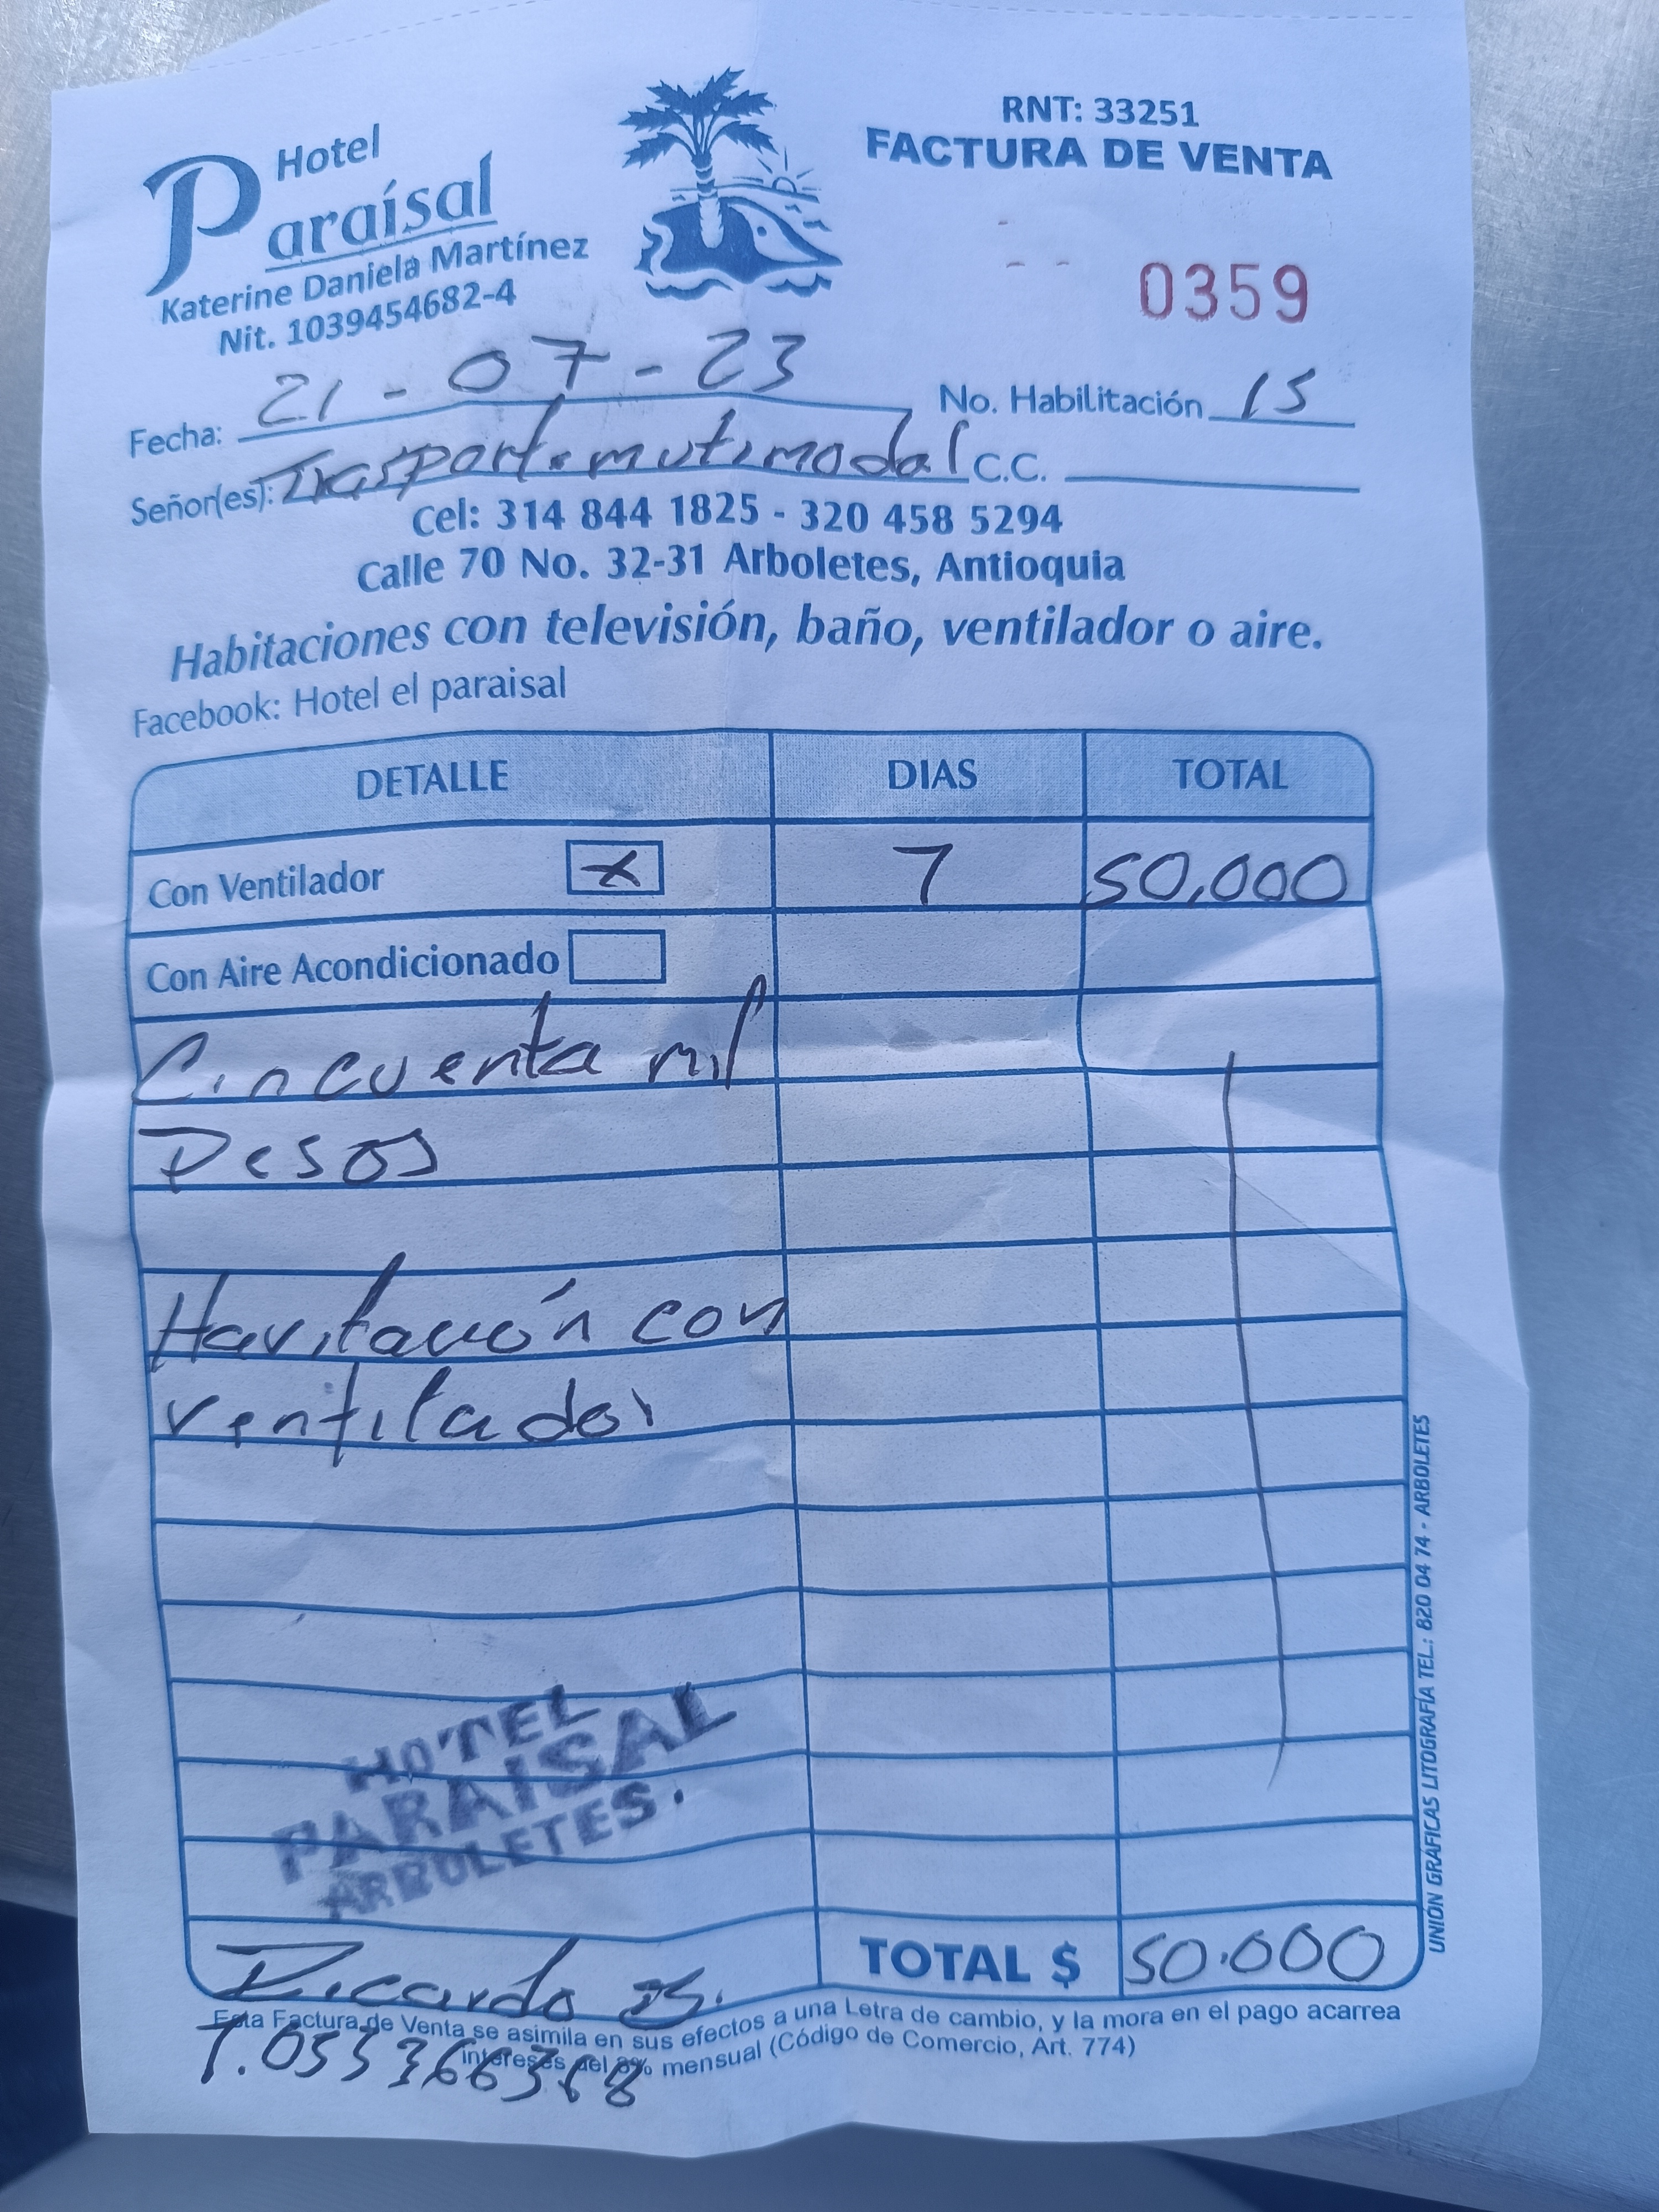 Hotel
Paraísal
Katerine Daniela Martínez
Nit. 1039454682-4
RNT: 33251
FACTURA DE VENTA
0359
Fecha: 21-07-23
No. Habilitación 15
Señor(es): Trasporte mutimodal C.C.
Cel: 314 844 1825 - 320 458 5294
Calle 70 No. 32-31 Arboletes, Antioquia
Habitaciones con televisión, baño, ventilador o aire.
Facebook: Hotel el paraisal
DETALLE DIAS TOTAL
Con Ventilador X 7 50,000
Con Aire Acondicionado
Cincuenta mil
Pesos
Havitación con
ventilador
HOTEL
PARAISAL
ARBOLETES.
TOTAL $ 50.000
Riccardo
Esta Factura de Venta se asimila en sus efectos a una Letra de cambio, y la mora en el pago acarrea
intereses del mensual (Código de Comercio, Art. 774)
UNIÓN GRÁFICAS LITOGRAFÍA TEL.: 820 04 74 - ARBOLETES